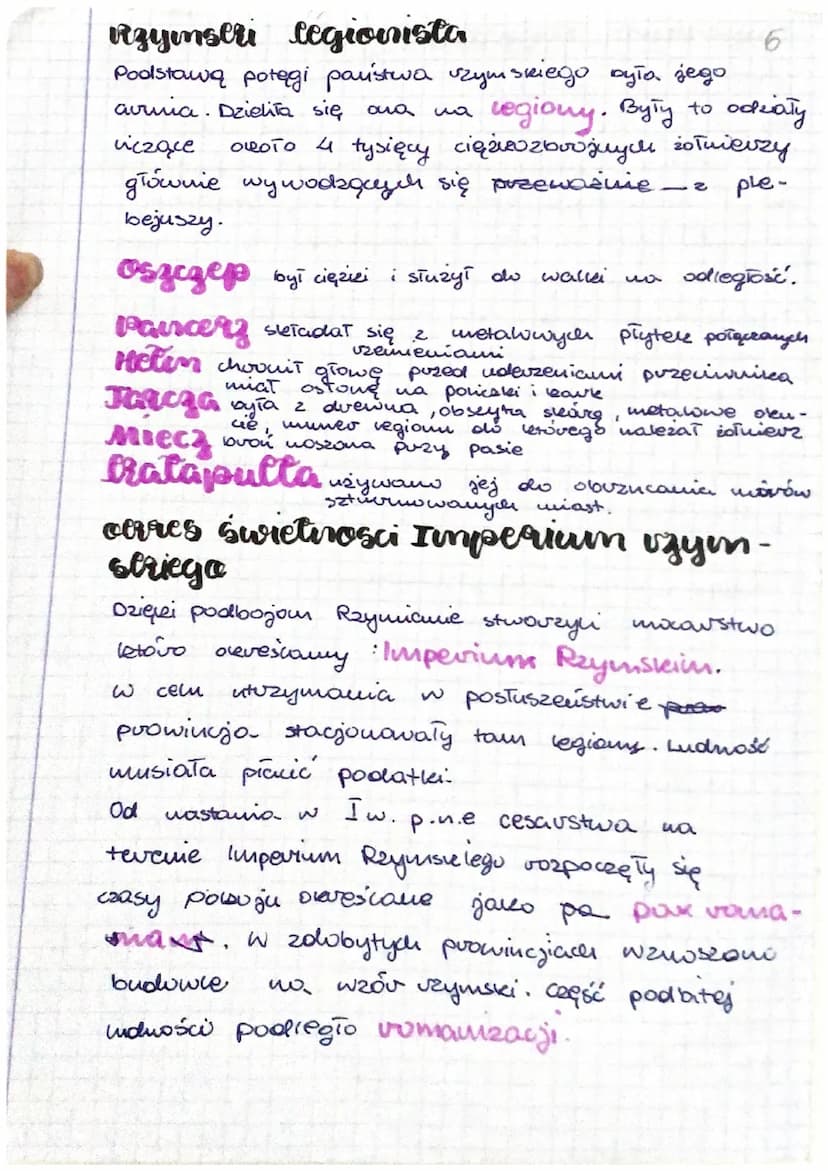 Rzymski legionista
6
Podstawą potęgi państwa rzymskiego była jego
armia. Dzieliła się ona na legiony. Były to odziały
liczące około 4 tysięcy ciężkozbrojnych żołnierzy
głównie wywodzących się przeważnie – z ple-
bejuszy.
Oszczep był ciężki i służył do walki na odległość.
Pancerz składał się z metalowych płytek połączonych
rzemieniami
Hełm chronił głowę przed uderzeniami przeciwnika
miał osłonę na policzki i kark
Tarcza była z drewna, obszyta skórą, metalowe oku-
cie, numer legionu do którego należał żołnierz
Miecz broń noszona przy pasie
Katapulta używano jej do obrzucania murów
szturmowanych miast.
okres świetności Imperium rzym-
skiego
Dzięki podbojom Rzymianie stworzyli mocarstwo
które określamy Imperium Rzymskim.
w celu utrzymania w posłuszeństwie
prowincja stacjonowały tam legiony. Ludność
musiała płacić podatki.
Od nastania w I w. p.n.e cesarstwa na
terenie Imperium Rzymskiego rozpoczęły się
czasy pokoju określane jako pa pax roma-
. W zdobytych prowincjach wznoszono
budowle na wzór rzymski. Część podbitej
ludności podległo romanizacji.